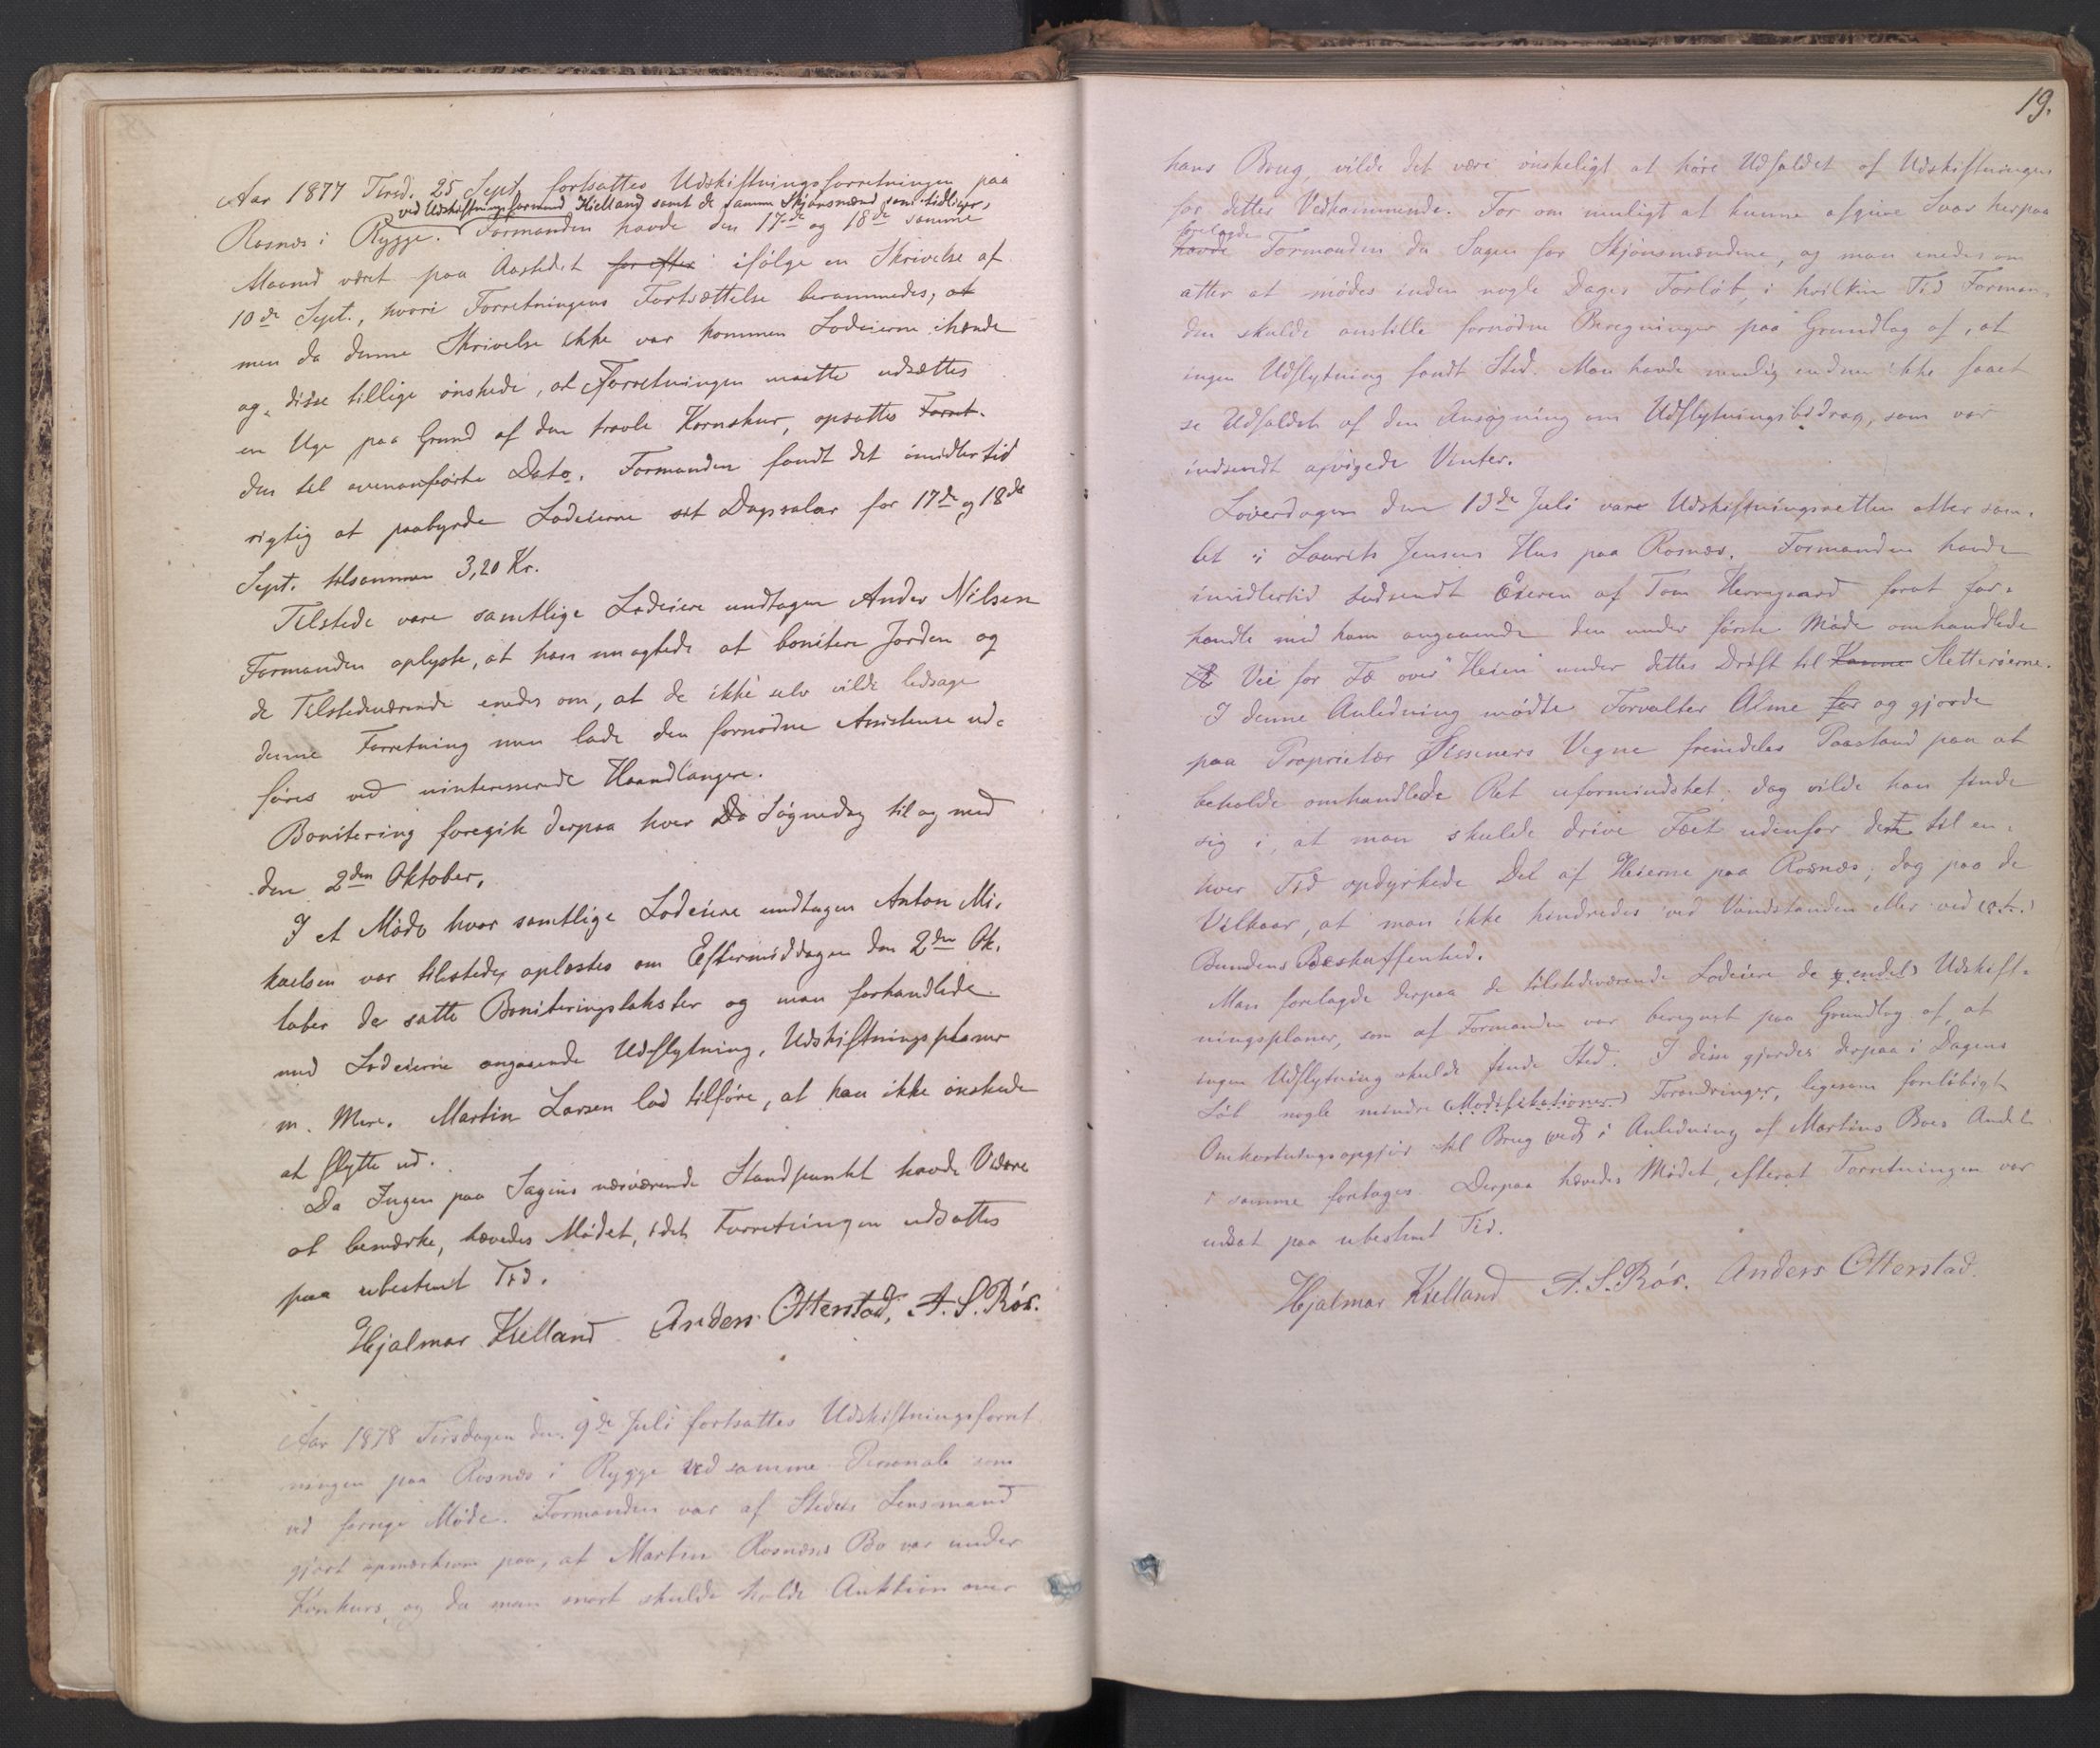 Aar 1877 Tirsd. 25 Sept. fortsattes Udskiftningsforretningen paa
ved Udskiftningsformand Kielland samt de samme Skjønsmænd som tidligere,
Rosnæs i Rygge. Formanden havde den 17de og 18de samme
Maaned været paa Aastedet for efter ifølge en Skrivelse af
10de Sept., hvori Forretningens Fortsættelse berammedes, at
men da denne Skrivelse ikke var kommen Lodeierne ihænde
og disse tillige ønskede, at Forretningen maatte udsættes
en Uge paa Grund af den travle Kornskur, opsattes Forret-
den til ovenanførte Dato. Formanden fandt det imidlertid
rigtig at paabyrde Lodeierne sit Dagsalær for 17de og 18de
Sept. tilsammen 3,20 Kr.
Tilstede vare samtlige Lodeiere undtagen Anders Nilsen
Formanden oplyste, at han unagtede at bonitere Jorden og
de Tilstedeværende enedes om, at de ikke selv vilde ledsage
denne Forretning men lade den fornødne Assistense ud-
føres ved uinteresserede Haandlangere.
Bonitering foregik derpaa hver Da Søgnedag til og med
den 2den Oktober.
I et Møde hvor samtlige Lodeiere undtagen Anton Mi-
kaelsen var tilstede, oplæstes om Eftermiddagen den 2den Ok-
tober de satte Boniteringstakster og man forhandlede
med Lodeierne angaaende Udflytning, Udskiftningsplaner
m. Mere. Martin Larsen lod tilføre, at han ikke ønskede
at flytte ud.
Da Ingen paa Sagens nærværende Standpunkt havde Videre
at bemærke, hævedes Mødet, idet Forretningen udsattes
paa ubestemt Tid.
Hjalmar Kielland Anders Otterstad, A. S. Rør.
Aar 1878 Tirsdagen den 9de Juli fortsattes Udskiftningsforret-
ningen paa Rosnæs i Rygge ved samme Personale som
ved forrige Møde. Formanden var af Stedets Lensmand
gjort opmærksom paa, at Martin Rosnæs's Bo var under
Konkurs, og da man snart skulde holde Auktion over
19.
hans Brug, vilde det være ønskeligt at høre Udfaldet af Udskiftningen
for dettes Vedkommende. For om muligt at kunne afgive Svar herpaa
forelagde
havde Formanden da Sagen for Skjønsmændene, og man enedes om
atter at mødes inden nogle Dages Forløb, i hvilken Tid Forman-
den skulde anstille fornødne Beregninger paa Grundlag af, at
ingen Udflytning fandt Sted. Man havde nemlig endnu ikke faaet
se Udfaldet af den Ansøgning om Udflytningsbidrag, som var
indsendt afvigede Vinter.
Løverdagen den 13de Juli vare Udskiftningsretten atter sam-
let i Laurits Jensens Hus paa Rosnæs. Formanden havde
imidlertid tudsendt Eieren af Tom Herregaard forat for-
handle med ham angaaende den under første Møde omhandlede
Vei for Fæ over "Heien" under dettes Drift til Kanne Sletterøerne.
I denne Anledning mødte Forvalter Alme for og gjorde
paa Proprietær Sisseners Vegne fremdeles Paastand paa at
beholde omhandlede Ret uformindsket; dog vilde han finde
sig i, at man skulde drive Fæet udenfor dette til en-
hver Tid opdyrkede Del af Heierne paa Rosnæs; dog paa de
Vilkaar, at man ikke hindredes ved Vandstanden eller ved
Bundens Beskaffenhed.
Man forelagde derpaa de tilstedeværende Lodeiere de Udskift-
ningsplaner, som af Formanden var beregnet paa Grundlag af, at
ingen Udflytning skulde finde Sted. I disse gjordes derpaa i Dagens
Løb nogle mindre (Modifikationer) Forandringer, ligesom foreløbigt
Omkostningsopgjør til Brug (ved) i Anledning af Martins Boes Andel
i samme foretages. Derpaa hævedes Mødet, efterat Forretningen var
udsat paa ubestemt Tid.
Hjalmar Kielland A. S. Rør. Anders Otterstad.